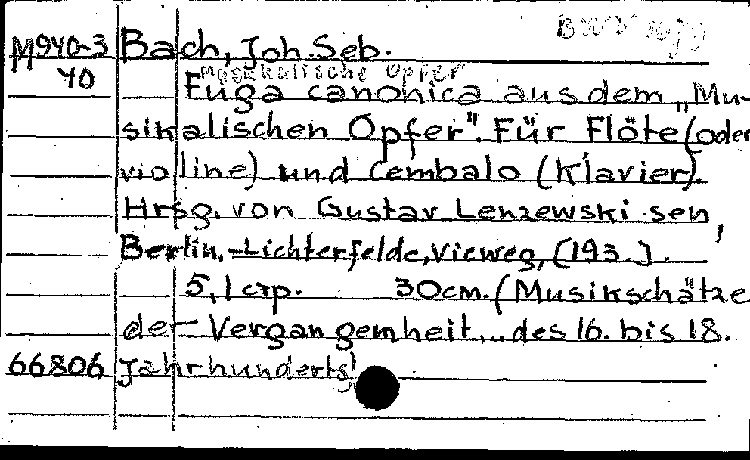 BWV 1079
M940-3 Bach, Joh. Seb.
40 Musikalische Opfer
Fuga canonica aus dem „Mu-
sikalischen Opfer". Für Flöte (oder
violine) und Cembalo (Klavier).
Hrsg. von Gustav Lenzewski sen,
Berlin,-Lichterfelde, Vieweg, [193.]
5, 1 crp. 30cm. (Musikschätze
der Vergangemheit... des 16. bis 18.
66806 Jahrhunderts)